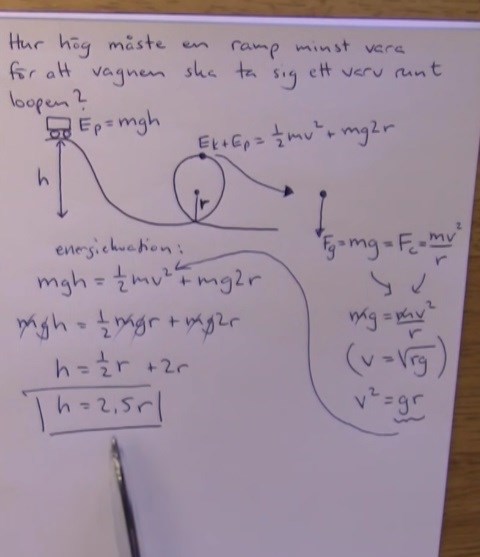 Hur hög måste en ramp minst vara
för att vagnen ska ta sig ett varv runt
loopen?
Ep = mgh
Ek+Ep = 1/2 mv² + mg2r
h
r
Fg = mg = Fc = mv²/r
energiekvation:
mgh = 1/2 mv² + mg2r
mgh = 1/2 mgr + mg2r
h = 1/2 r + 2r
h = 2,5r
mg = mv²/r
(v = √rg)
v² = gr